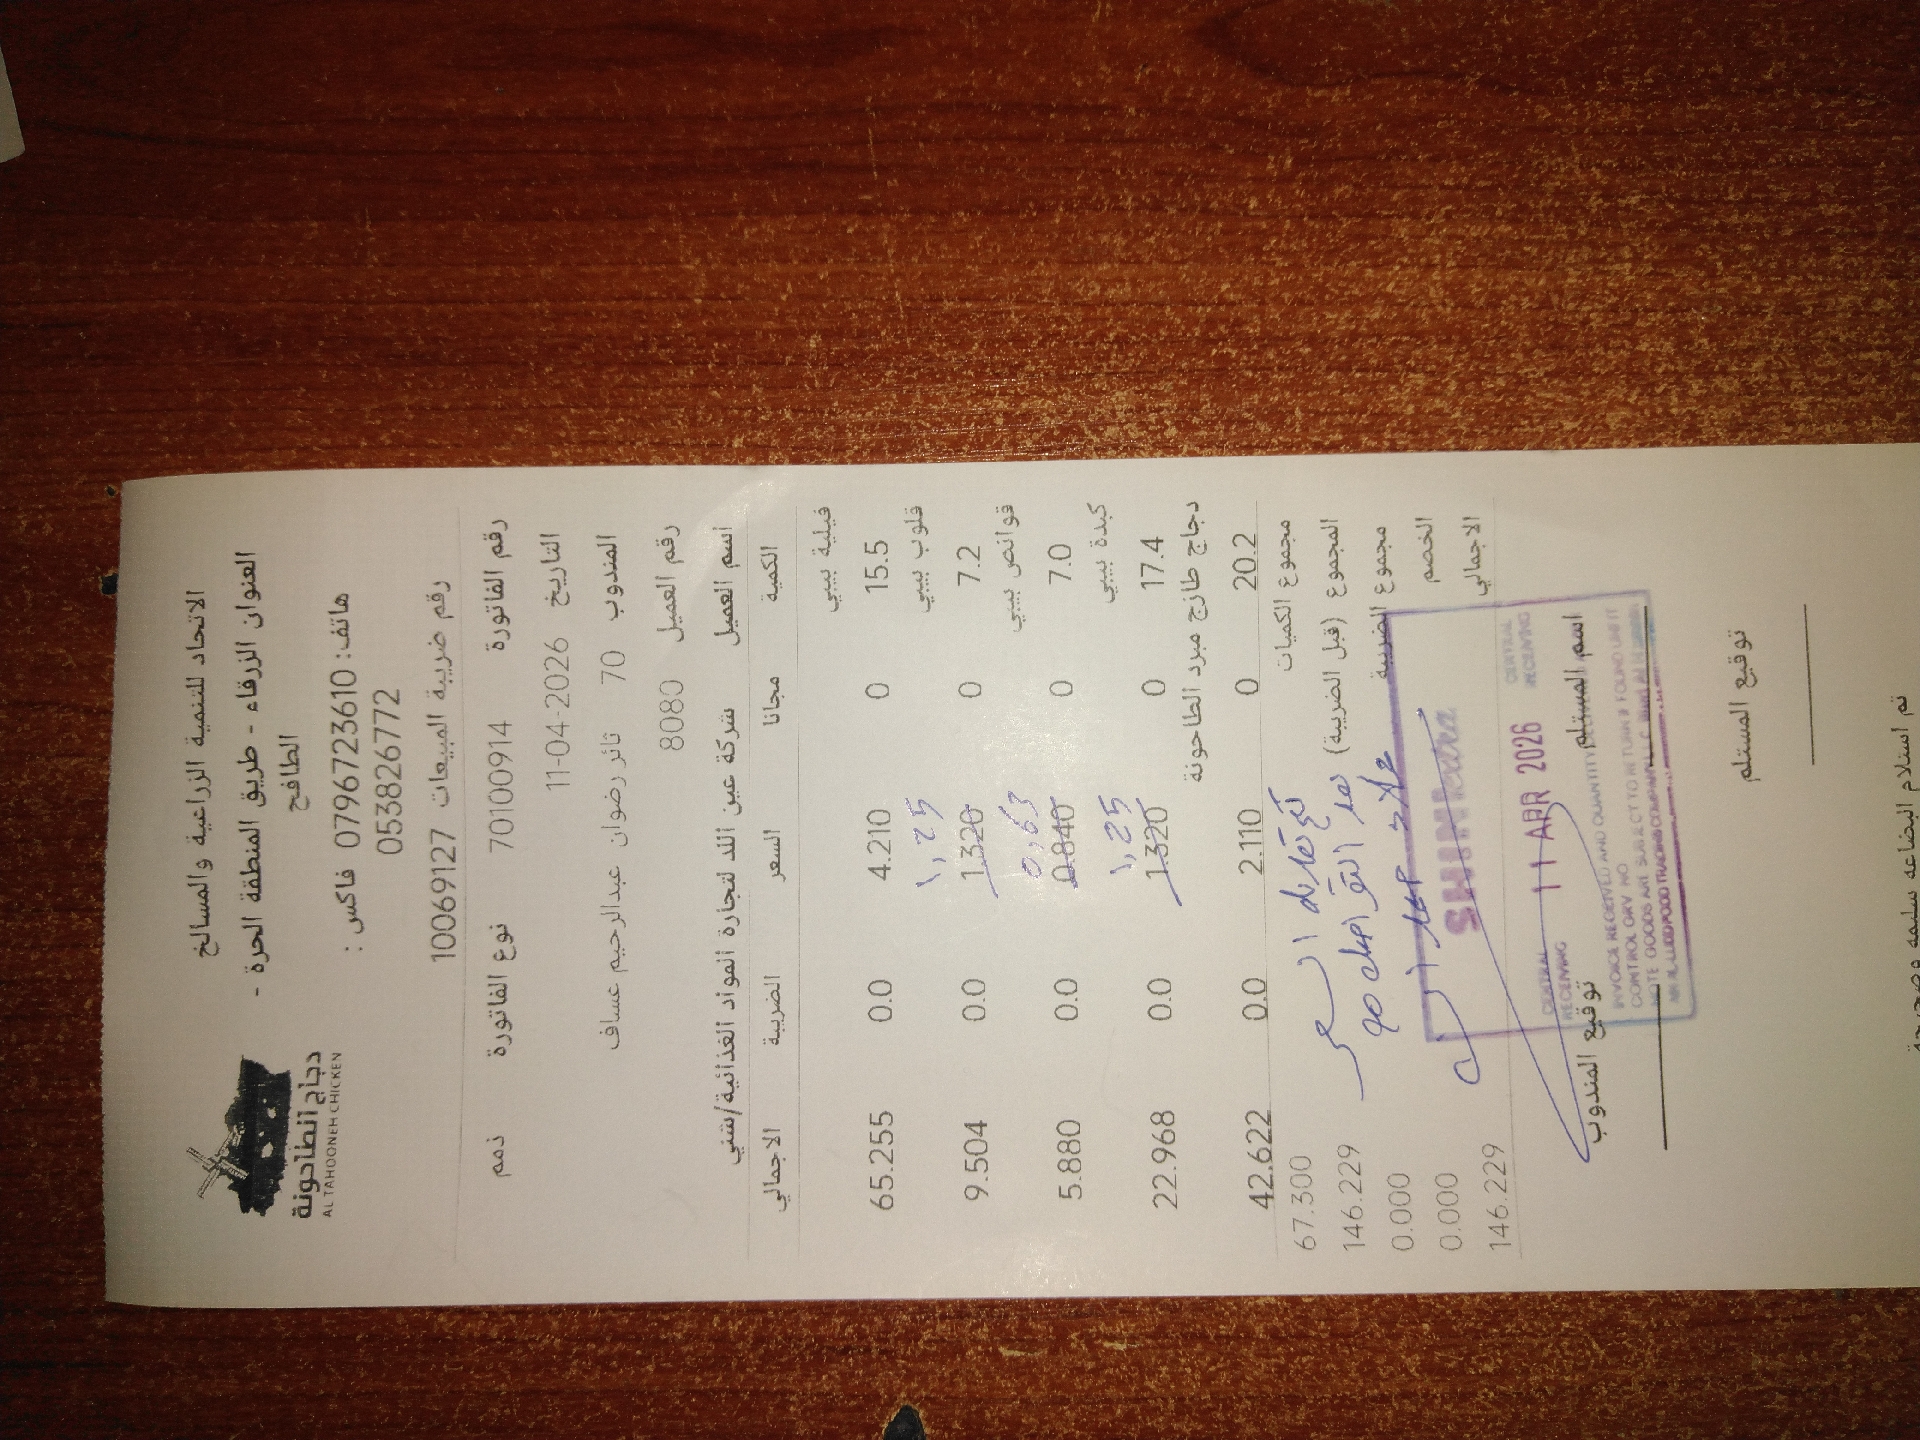 دجاج الطاحونة
AL TAHOONEH CHICKEN
الاتحاد للتنمية الزراعية والمسالخ
العنوان الزرقاء - طريق المنطقة الحرة -
الطافح
هاتف: 0796723610 فاكس :
053826772
رقم ضريبة المبيعات 10069127
رقم الفاتورة 70100914 نوع الفاتورة ذمم
التاريخ 11-04-2026
المندوب 70 ثائر رضوان عبدالرحيم عساف
رقم العميل 8080
اسم العميل شركة عين اللد لتجارة المواد الغذائية/شني
الكمية مجانا السعر الضريبة الاجمالي
فيلية بيبي
15.5 0 4.210 0.0 65.255
قلوب بيبي 1,25
7.2 0 1.320 0.0 9.504
قوانص بيبي 0,63
7.0 0 0.840 0.0 5.880
كبدة بيبي 1,25
17.4 0 1.320 0.0 22.968
دجاج طازج مبرد الطاحونة
20.2 0 2.110 0.0 42.622
مجموع الكميات 67.300
المجموع (قبل الضريبة) 146.229
مجموع الضريبة 0.000
الخصم 0.000
الاجمالي 146.229
تم تعديل السعر
CENTRAL RECEIVING
11 APR 2026
CENTRAL RECEIVING
INVOICE RECEIVED AND QUANTITY
CONTROL GRV NO
NOTE GOODS ARE SUBJECT TO RETURN IF FOUND UNFIT
اسم المستلم
توقيع المندوب
توقيع المستلم
تم استلام البضاعه سليمه وصحيحة